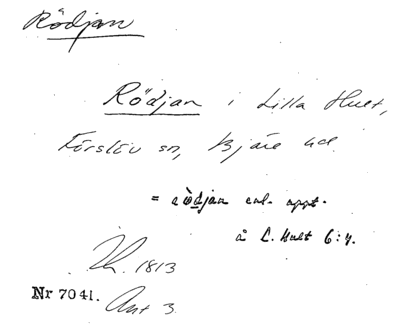 Rödjan
Rödjan i Lilla Hult,
Förslöv sn, Bjäre hd
= rödjan enl. uppt.
å L. Hult 6:4.
1813
Nr 7041. Ant 3.